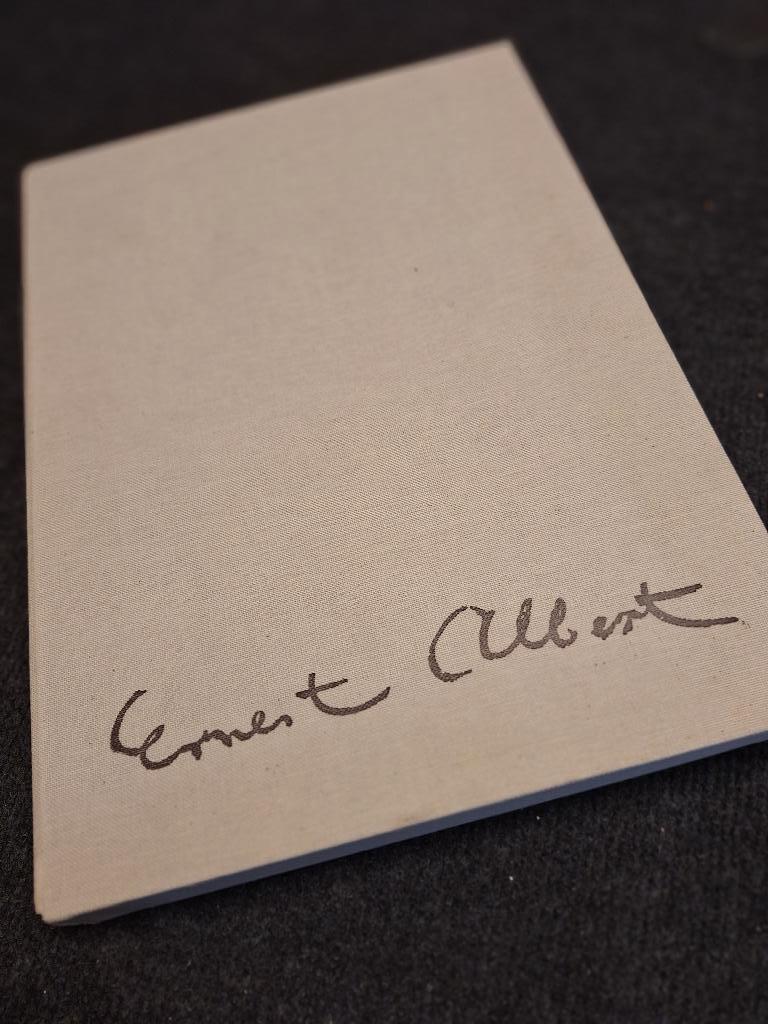 Ernest Albert